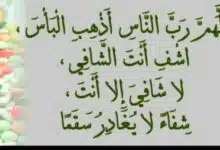 لَّهُمَّ رَبَّ النَّاسِ أَذْهِبِ الْبَأْسَ ،
اشْفِ أَنْتَ الشَّافِي ،
لا شَافِيَ إِلا أَنْتَ ،
شِفَاءً لا يُغَادِرُ سَقَمًا